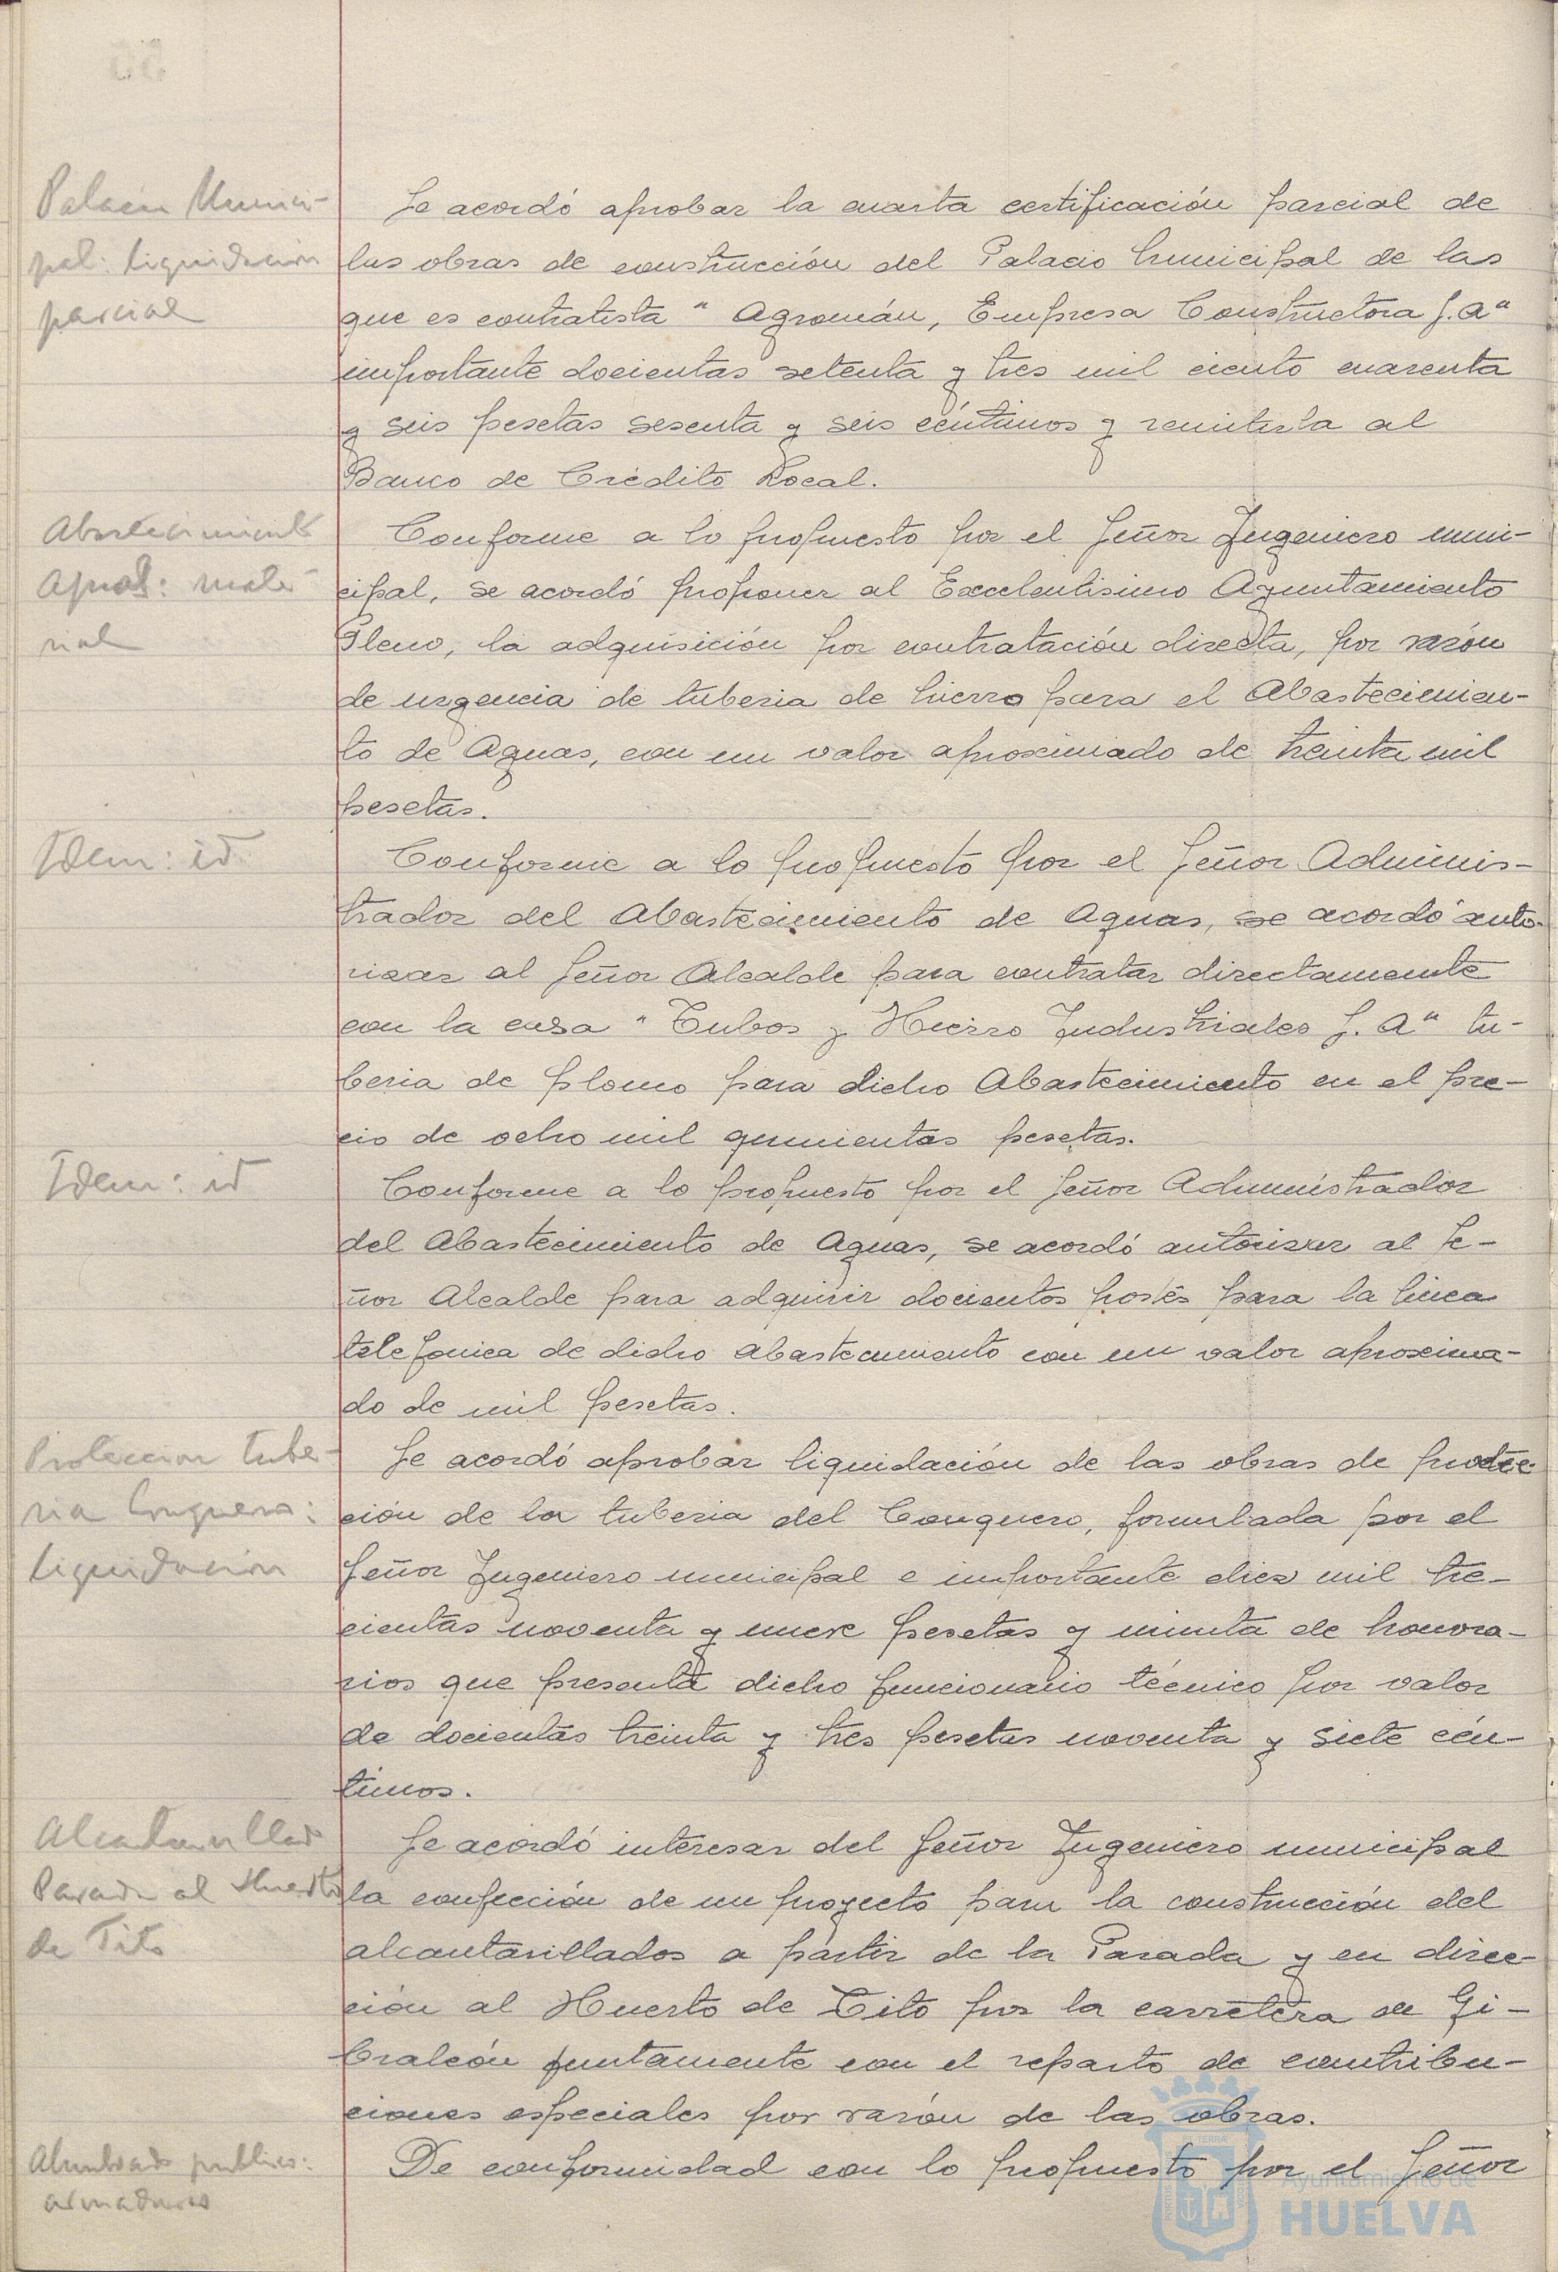 Palacio Munici-
pal: liquidación
parcial
Se acordó aprobar la cuarta certificación parcial de
las obras de construcción del Palacio Municipal de las
que es contratista "Agromán, Empresa Constructora S.A"
importante docientas setenta y tres mil ciento cuarenta
y seis pesetas sesenta y seis céntimos y remitirla al
Banco de Crédito Local.
Abastecimiento
Aguas: mate-
rial
Conforme a lo propuesto por el Señor Ingeniero muni-
cipal, se acordó proponer al Excelentisimo Ayuntamiento
Pleno, la adquisición por contratación directa, por razón
de urgencia de tuberia de hierro para el Abastecimien-
to de Aguas, con un valor aproximado de treinta mil
pesetas.
Idem: id
Conforme a lo propuesto por el Señor Adminis-
trador del Abastecimiento de Aguas, se acordó auto-
rizar al Señor Alcalde para contratar directamente
con la casa "Tubos y Hierro Industriales S. A" tu-
beria de plomo para dicho Abastecimiento en el pre-
cio de ocho mil quinientas pesetas.
Idem: id
Conforme a lo propuesto por el Señor Administrador
del Abastecimiento de Aguas, se acordó autorizar al Se-
ñor Alcalde para adquirir docientos postes para la linea
telefonica de dicho abastecimiento con un valor aproxima-
do de mil pesetas.
Proteccion tube-
ria Conquero:
liquidación
Se acordó aprobar liquidación de las obras de protec-
ción de la tuberia del Conquero, formulada por el
Señor Ingeniero municipal e importante diez mil tre-
cientas noventa y nueve pesetas y minuta de honora-
rios que presenta dicho funcionario técnico por valor
de docientas treinta y tres pesetas noventa y siete cén-
timos.
Alcantarillado
Parada al Huerto
de Tito
Se acordó interesar del Señor Ingeniero municipal
la confección de un proyecto para la construcción del
alcantarillados a partir de la Parada y en direc-
ción al Huerto de Tito por la carretera de Gi-
braleón juntamente con el reparto de contribu-
ciones especiales por razón de las obras.
Alumbrado publico:
armaduras
De conformidad con lo propuesto por el Señor
Ayuntamiento de
HUELVA